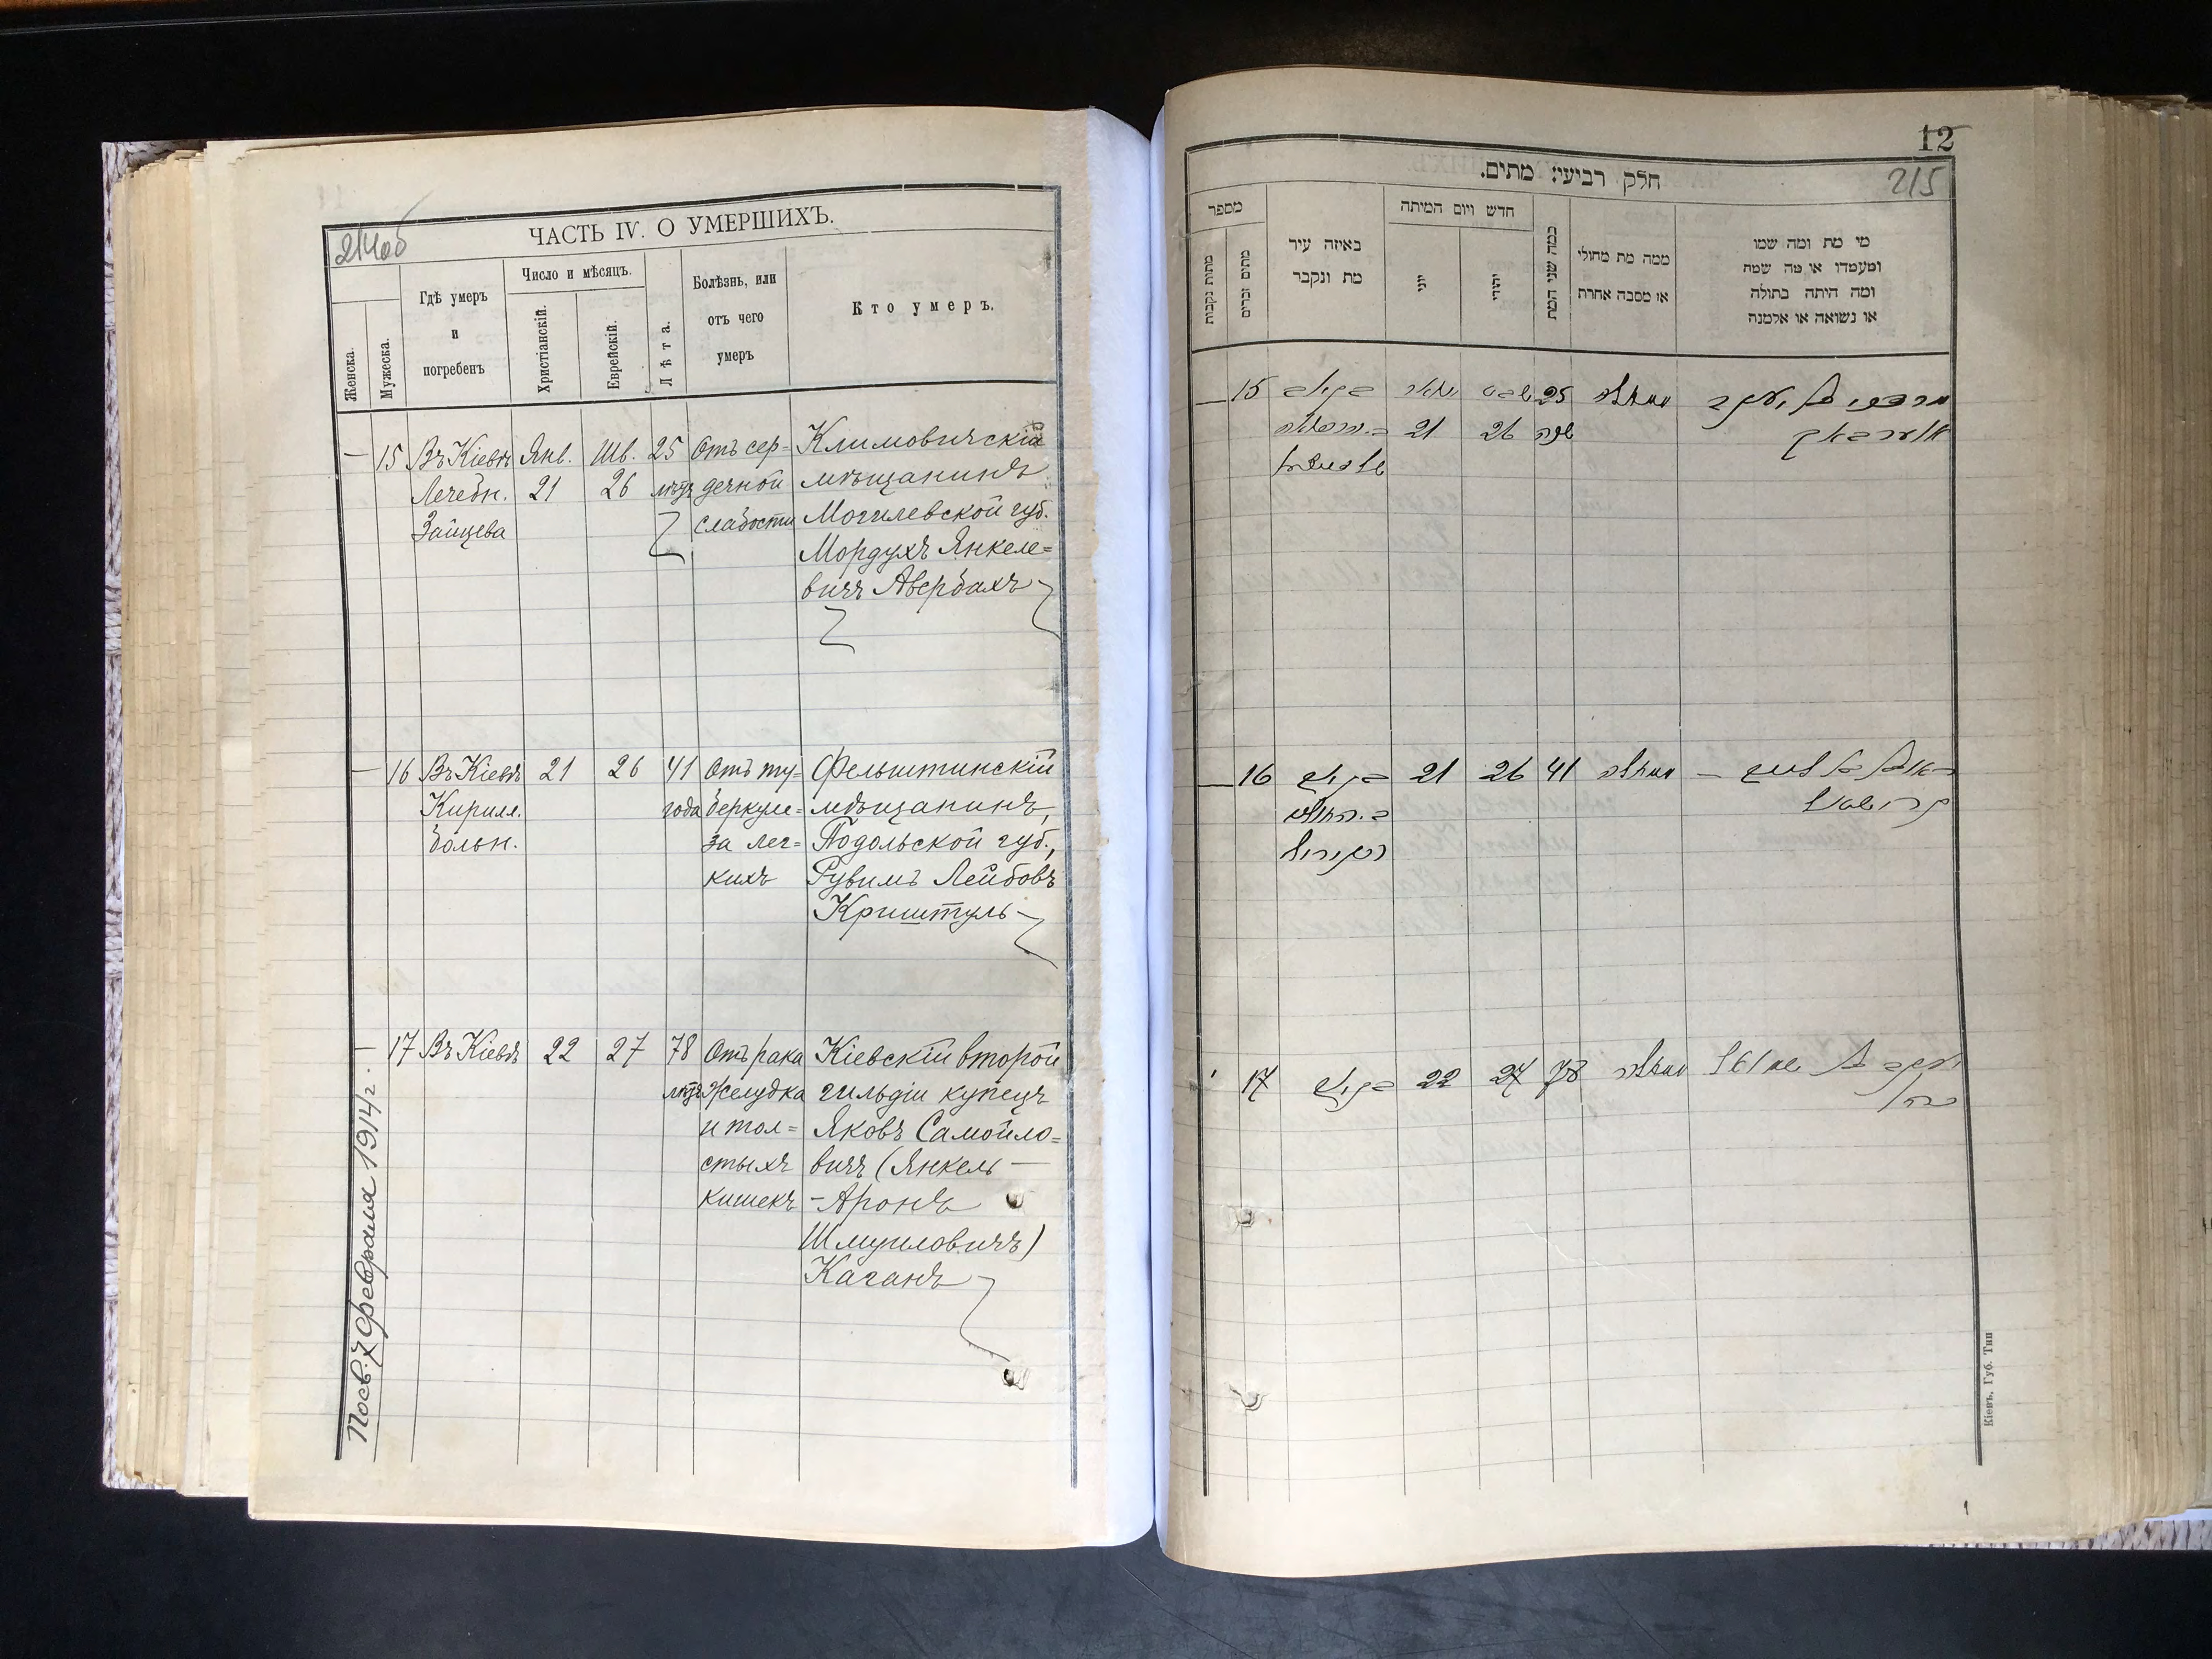 214об
ЧАСТЬ IV. О УМЕРШИХЪ.
Женска.
Мужеска.
Гдѣ умеръ
и
погребенъ
Число и мѣсяцъ.
Христіанскій.
Еврейскій.
Лѣта.
Болѣзнь, или
отъ чего
умеръ
Кто умеръ.
— 15 Въ Кіевѣ Янв. Шв. 25 Отъ сер= Климовичскій
Лечебн. 21 26 лѣтъ дечной мѣщанинъ
Зайцева слабости Могилевской губ.
Мордухъ Янкеле=
вичъ Авербахъ
— 16 Въ Кіевѣ 21 26 41 Отъ ту= Фельштинскій
Кирилл. года беркуле= мѣщанинъ,
больн. за лег= Подольской губ.,
кихъ Рувимъ Лейбовъ
Криштуль
— 17 Въ Кіевѣ 22 27 78 Отъ рака Кіевскій второй
лѣтъ желудка гильдіи купецъ
и тол= Яковъ Самойло=
стыхъ вичъ (Янкель —
кишекъ - Аронъ
Шмуиловичъ)
Каганъ
Посв. 7 февраля 1914 г.
12
215
חלק רביעי: מתים.
מספר
מתות נקבות
מתים זכרים
באיזה עיר
מת ונקבר
חדש ויום המיתה
יוני
יהודי
כמה שני המת
ממה מת מחולי
או מסבה אחרת
מי מת ומה שמו
ומעמדו או מה שמה
ומה היתה בתולה
או נשואה או אלמנה
— 15 בקיוב ינואר שבט 25 מרדכי בן יעקב
21 26 שנה אווערבאך
— 16 בקיוב 21 26 41 ראובן בן לייב —
קרישטול
17 בקיוב 22 27 78 יעקב בן שמואל
כהן
Кіевъ, Губ. Тип